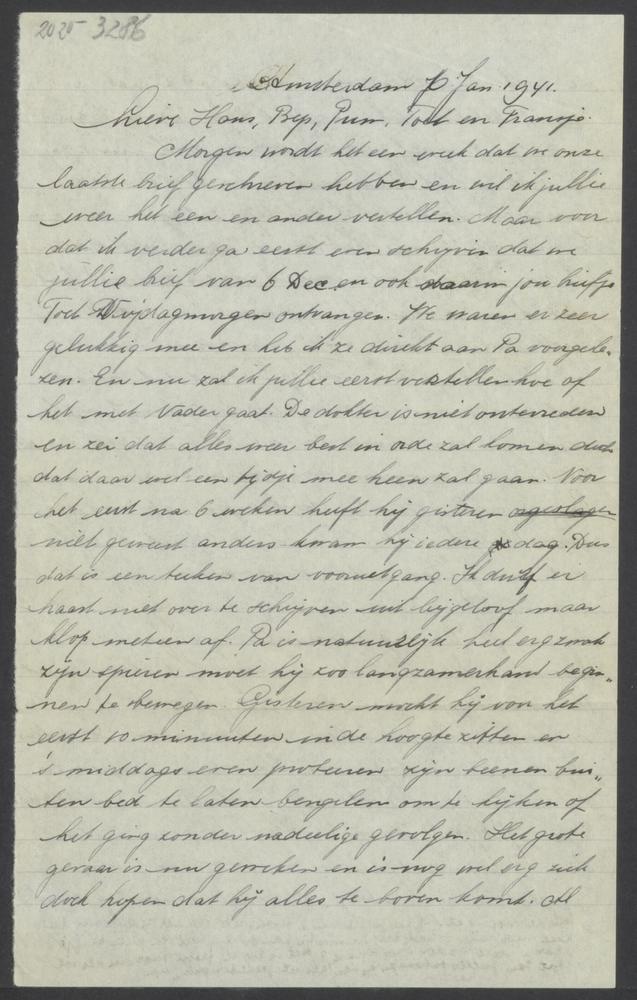 2020 - 3286
Amsterdam 6 Jan. 1941.
Lieve Hans, Bep, Pum, Toet en Fransje.
Morgen wordt het een week dat we onze
laatste brief geschreven hebben en wil ik jullie
weer het een en ander vertellen. Maar voor
dat ik verder ga eerst even schrijven dat we
jullie brief van 6 Dec. en ook daarin jou briefje
Toet Vrijdagmorgen ontvangen. We waren er zeer
gelukkig mee en heb ik ze direkt aan Pa voorgele-
zen. En nu zal ik jullie eerst vertellen hoe of
het met Vader gaat. De dokter is niet ontevreden
en zei dat alles weer best in orde zal komen doch
dat daar wel een tijdje mee heen zal gaan. Voor
het eerst na 6 weken heeft hij gisteren
niet geweest anders kwam hij iedere dag. Dus
dat is een teeken van vooruitgang. Ik durf er
haast niet over te schrijven uit bijgeloof maar
klop meteen af. Pa is natuurlijk heel erg zwak
zijn spieren moet hij zoo langzamerhand begin-
nen te bewegen. Gisteren mocht hij voor het
eerst 10 minuuten in de hoogte zitten en
's middags even probeeren zijn beenen bui-
ten bed te laten bengelen om te kijken of
het ging zonder nadeelige gevolgen. Het grote
gevaar is nu geweken en is nog wel erg ziek
doch hopen dat hij alles te boven komt. Al